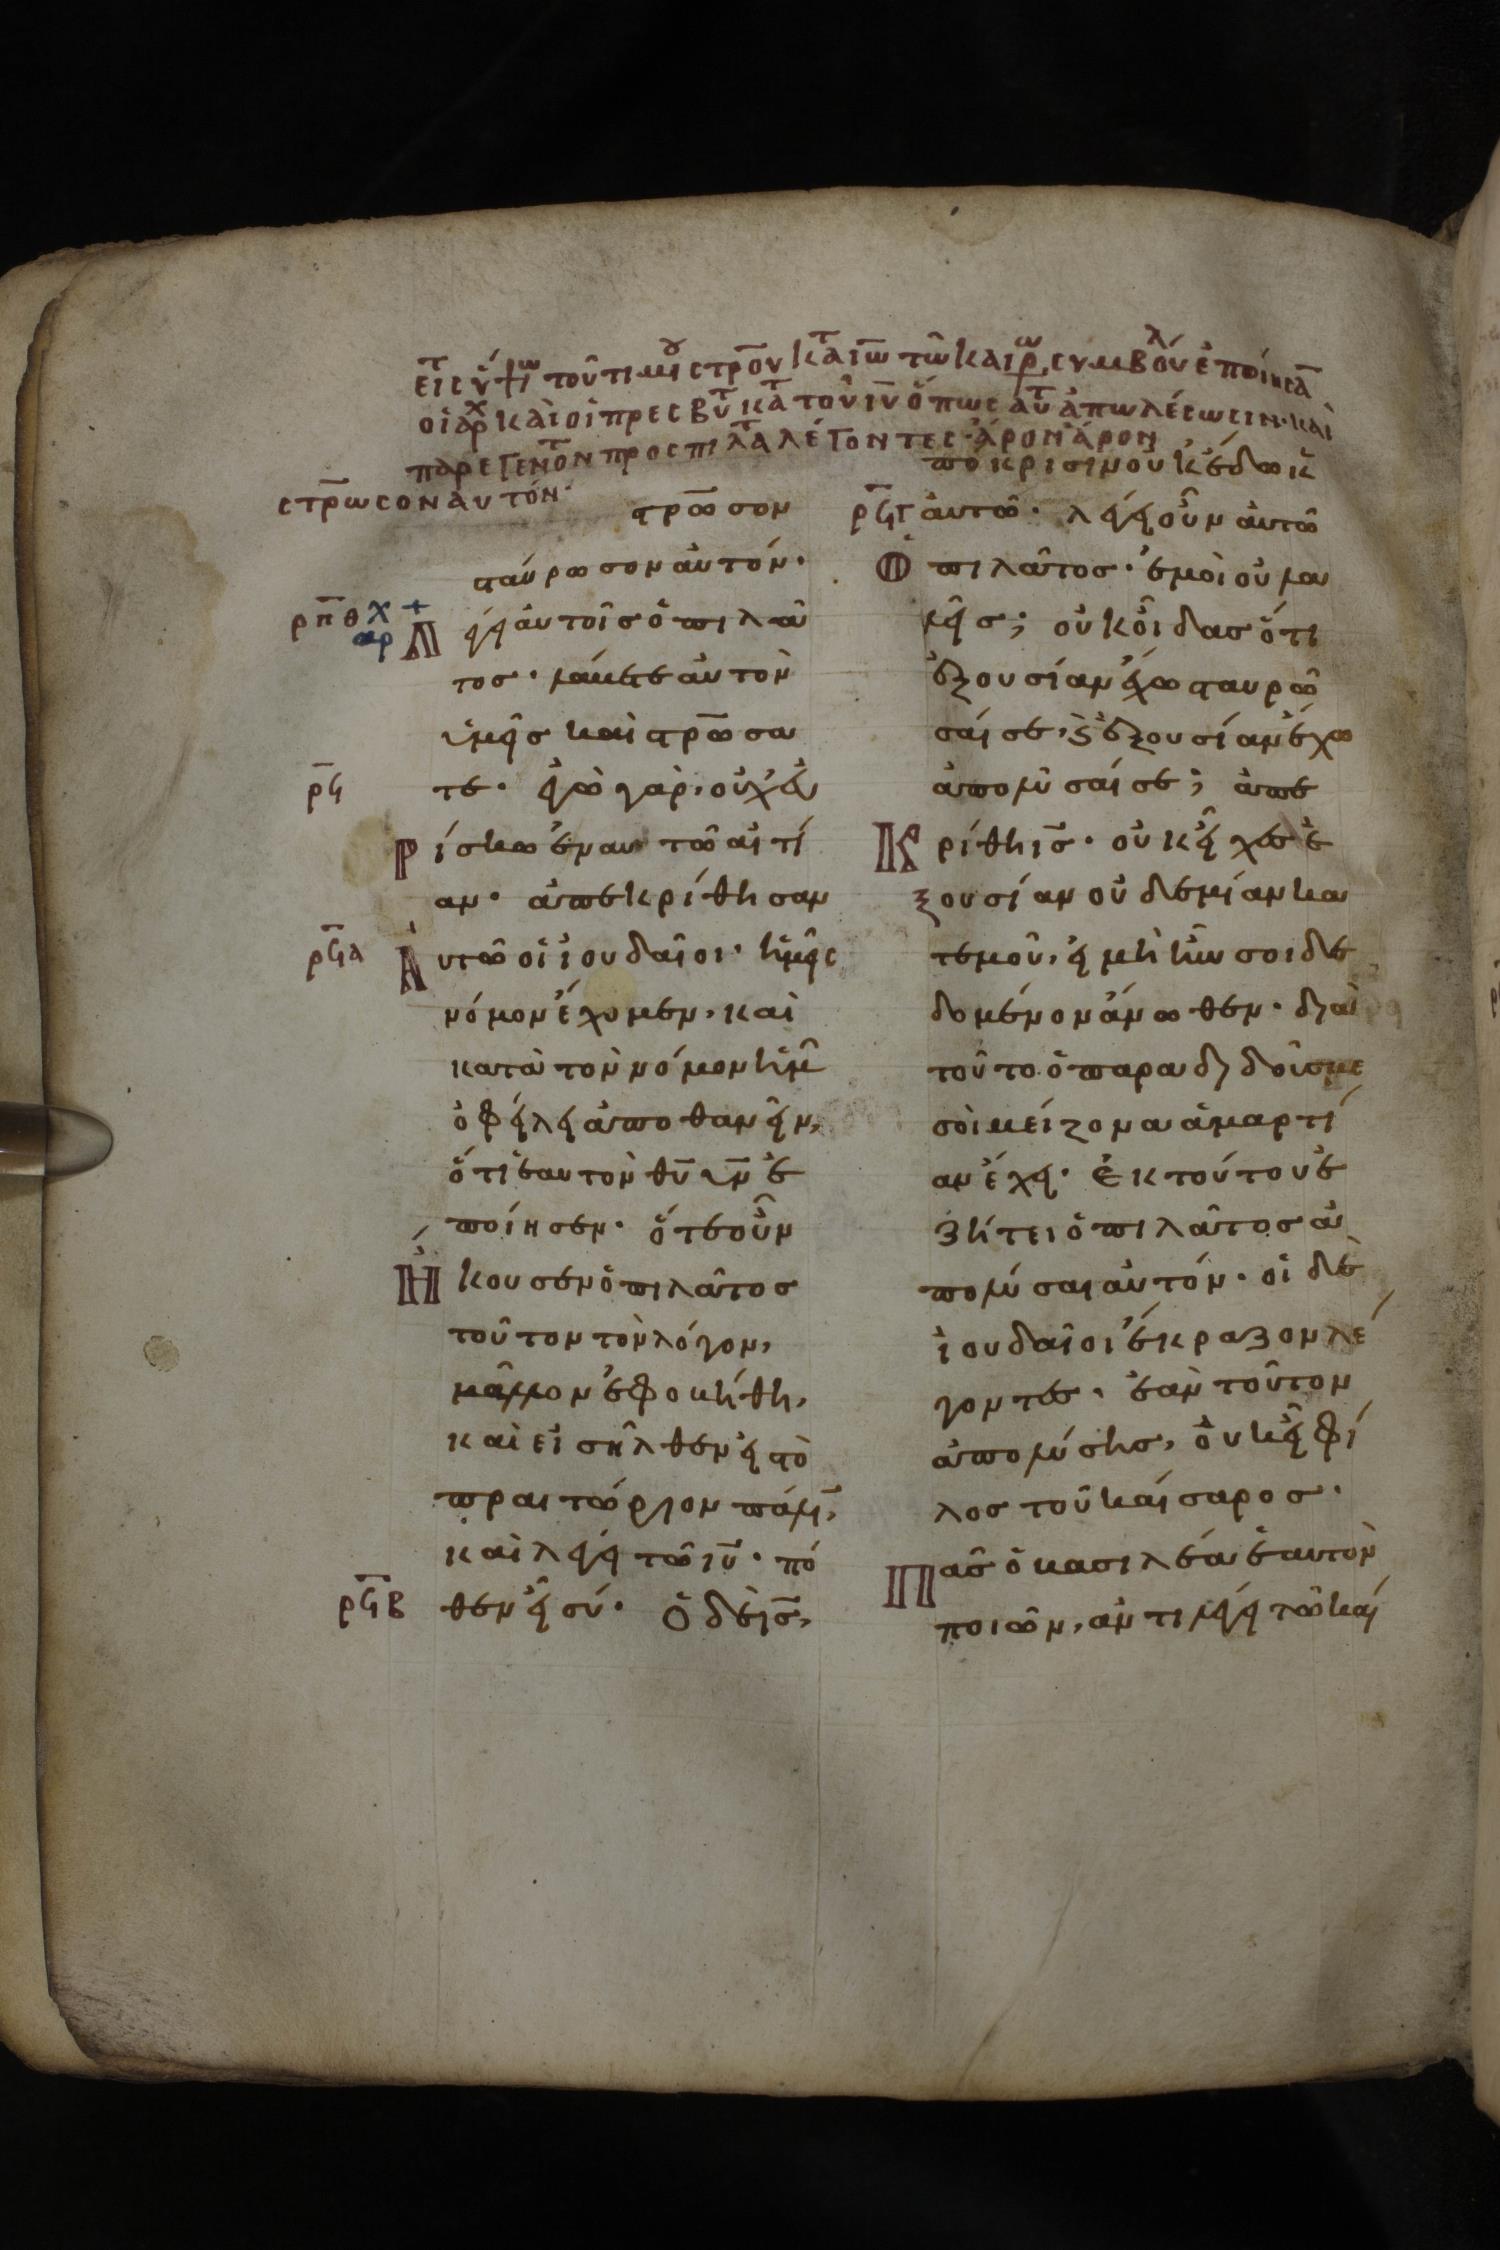 εἰς ὕψω τοῦ τιμίου στρου κατ ιω τῶ καιρῶ συμβούλ ἐποίησα
οἱ ἀρχ καὶ οἱ πρεσβυτ κατ τοῦ ιυ ὅπως αὐτ ἀπωλέσωσιν· καὶ
παρεγένοντ προς πιλατ λέγοντες ἆρον ἆρον
στρωσον αυτόν·
στρωσον
σταύρωσον αὐτόν·
ρπθ Λέγει αὐτοῖς ὁ πιλᾶ
τος· λάβετε αὐτὸν
ὑμεῖς καὶ στρωσα
ρϞ τε· ἐγὼ γὰρ, οὐχ εὑ
Ρίσκω ἐν αυτῶ αἰτί
αν· ἀπεκρίθησαν
ρϞα Ἀυτῶ οἱ ἰουδαῖοι· ἡμεῖς
νόμον ἔχομεν, καὶ
κατὰ τὸν νόμον ἡμῶ
ὀφείλει ἀποθανεῖν,
ὅτι ἑαυτὸν θυ υν ἐ
ποίησεν· ὅτε οὖν
Ἤκουσεν ὁ πιλᾶτος
τοῦτον τὸν λόγον,
μᾶλλον ἐφοβήθη,
καὶ εἰσῆλθεν εἰς τὸ
πραιτώριον πάλι,
καὶ λέγει τῶ ιυ· πό
ρϞβ θεν εἶ σύ· Ὁ δὲ ις,
ἀπόκρισιν οὐκ ἔδωκε
ρϞγ αὐτῶ· λέγει οὖν αὐτῶ
Ὁ πιλᾶτος· ἐμοὶ οὐ λα
λεῖς; οὐκ οἶδας ὅτι
ἐξουσίαν ἔχω σταυρῶ
σαί σε, ϗ ἐξουσίαν ἔχω
ἀπολῦσαί σε; ἀπε
Κρίθη ις· οὐκ εἶχες ἐ
ξουσίαν οὐδεμίαν κα
τ εμοῦ, εἰ μὴ ἦν σοι δε
δομένον ἄνωθεν· διὰ
τοῦτο ὁ παραδιδούς με
σοὶ μείζονα ἁμαρτί
αν ἔχει· Ἐκ τούτου ἐ
ζήτει ὁ πιλᾶτος ἀ
πολύσαι αὐτόν· οἱ δὲ
ἰουδαῖοι ἔκραζον λέ
γοντες· ἐὰν τοῦτον
ἀπολύσης, οὐκ εἶ φί
λος τοῦ καίσαρος·
Πᾶς ὁ βασιλέα ἑαυτὸν
ποιῶν, ἀντιλέγει τῶ καί